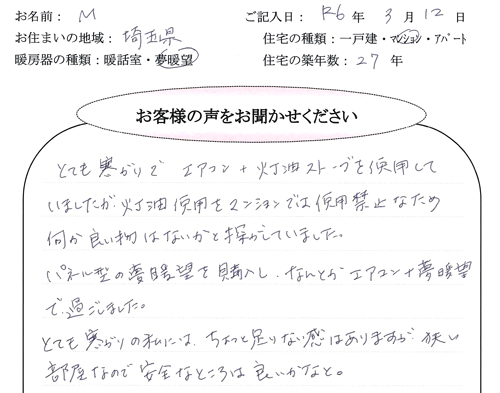 お名前： M ご記入日： R6 年 3 月 12 日
お住まいの地域： 埼玉県 住宅の種類：一戸建・マンション・アパート
暖房器の種類：暖話室・夢暖望 住宅の築年数： 27 年
お客様の声をお聞かせください
とても寒がりで エアコン + 灯油ストーブを使用して
いましたが 灯油使用をマンションでは使用禁止なため
何か良い物はないかと探がしていました。
パネル型の夢暖望を購入し、なんとか エアコン+夢暖望
で過ごしました。
とても寒がりの私には、ちょっと足りない感はありますが 狭い
部屋なので 安全なところは良いかなと。